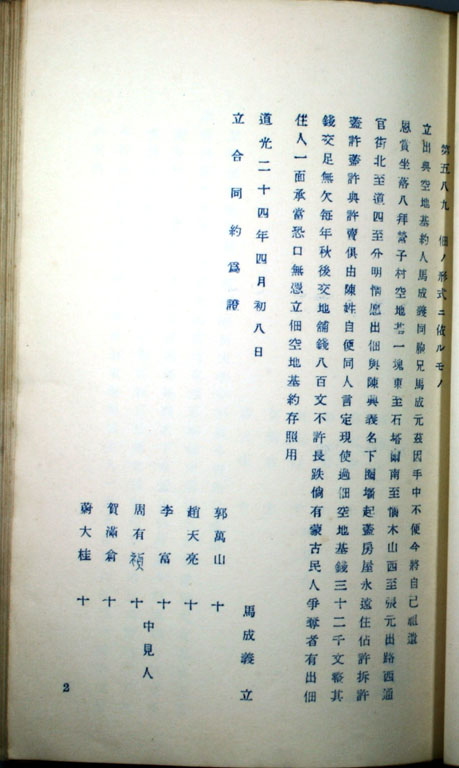 第五八九 佃ノ形式ニ依ルモノ
立出典空地基約人馬成義同胞兄馬成元茲因手中不便今將自己祖遺
恩賞坐落八拜營子村空地基一塊東至石塔爾南至楊木山西至張元出路西通
官街北至道四至分明情愿出佃與陳典義名下圈墻起蓋房屋永遠住佔許拆許
蓋許蓋許典許賣俱由陳姓自便同人言定現使過佃空地基錢三十二千文整其
錢交足無欠每年秋後交地舖錢八百文不許長跌倘有蒙古民人爭奪者有出佃
住人一面承當恐口無憑立佃空地基約存照用
道光二十四年四月初八日
立合同約爲證
馬成義立
郭萬山 十
趙天亮 十
李富 十
周有禎 十
賀滿倉 十
蔚大桂 十
中見人
2